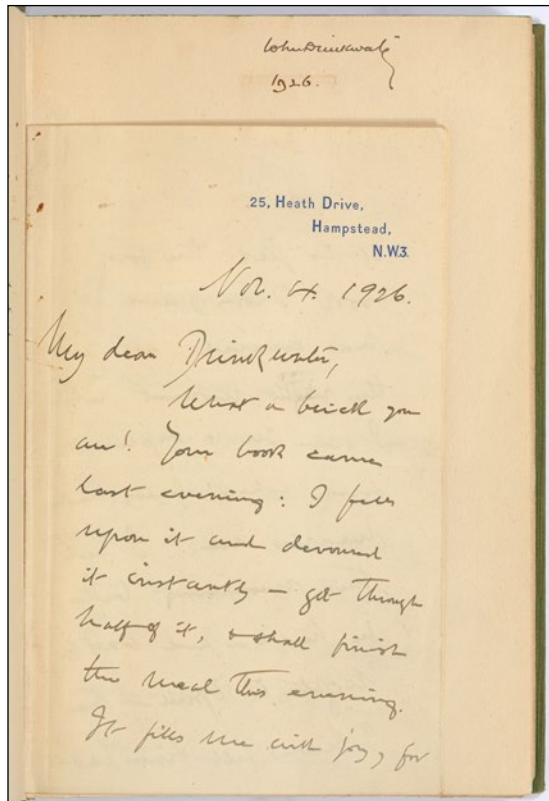 John Drinkwater
1926.
25, Heath Drive,
Hampstead,
N.W.3.
Nov. 4. 1926.
My dear Drinkwater,
What a brick you
are! Your book came
last evening: I fell
upon it and devoured
it instantly – got through
half of it, & shall finish
the meal this evening.
It fills me with joy, for